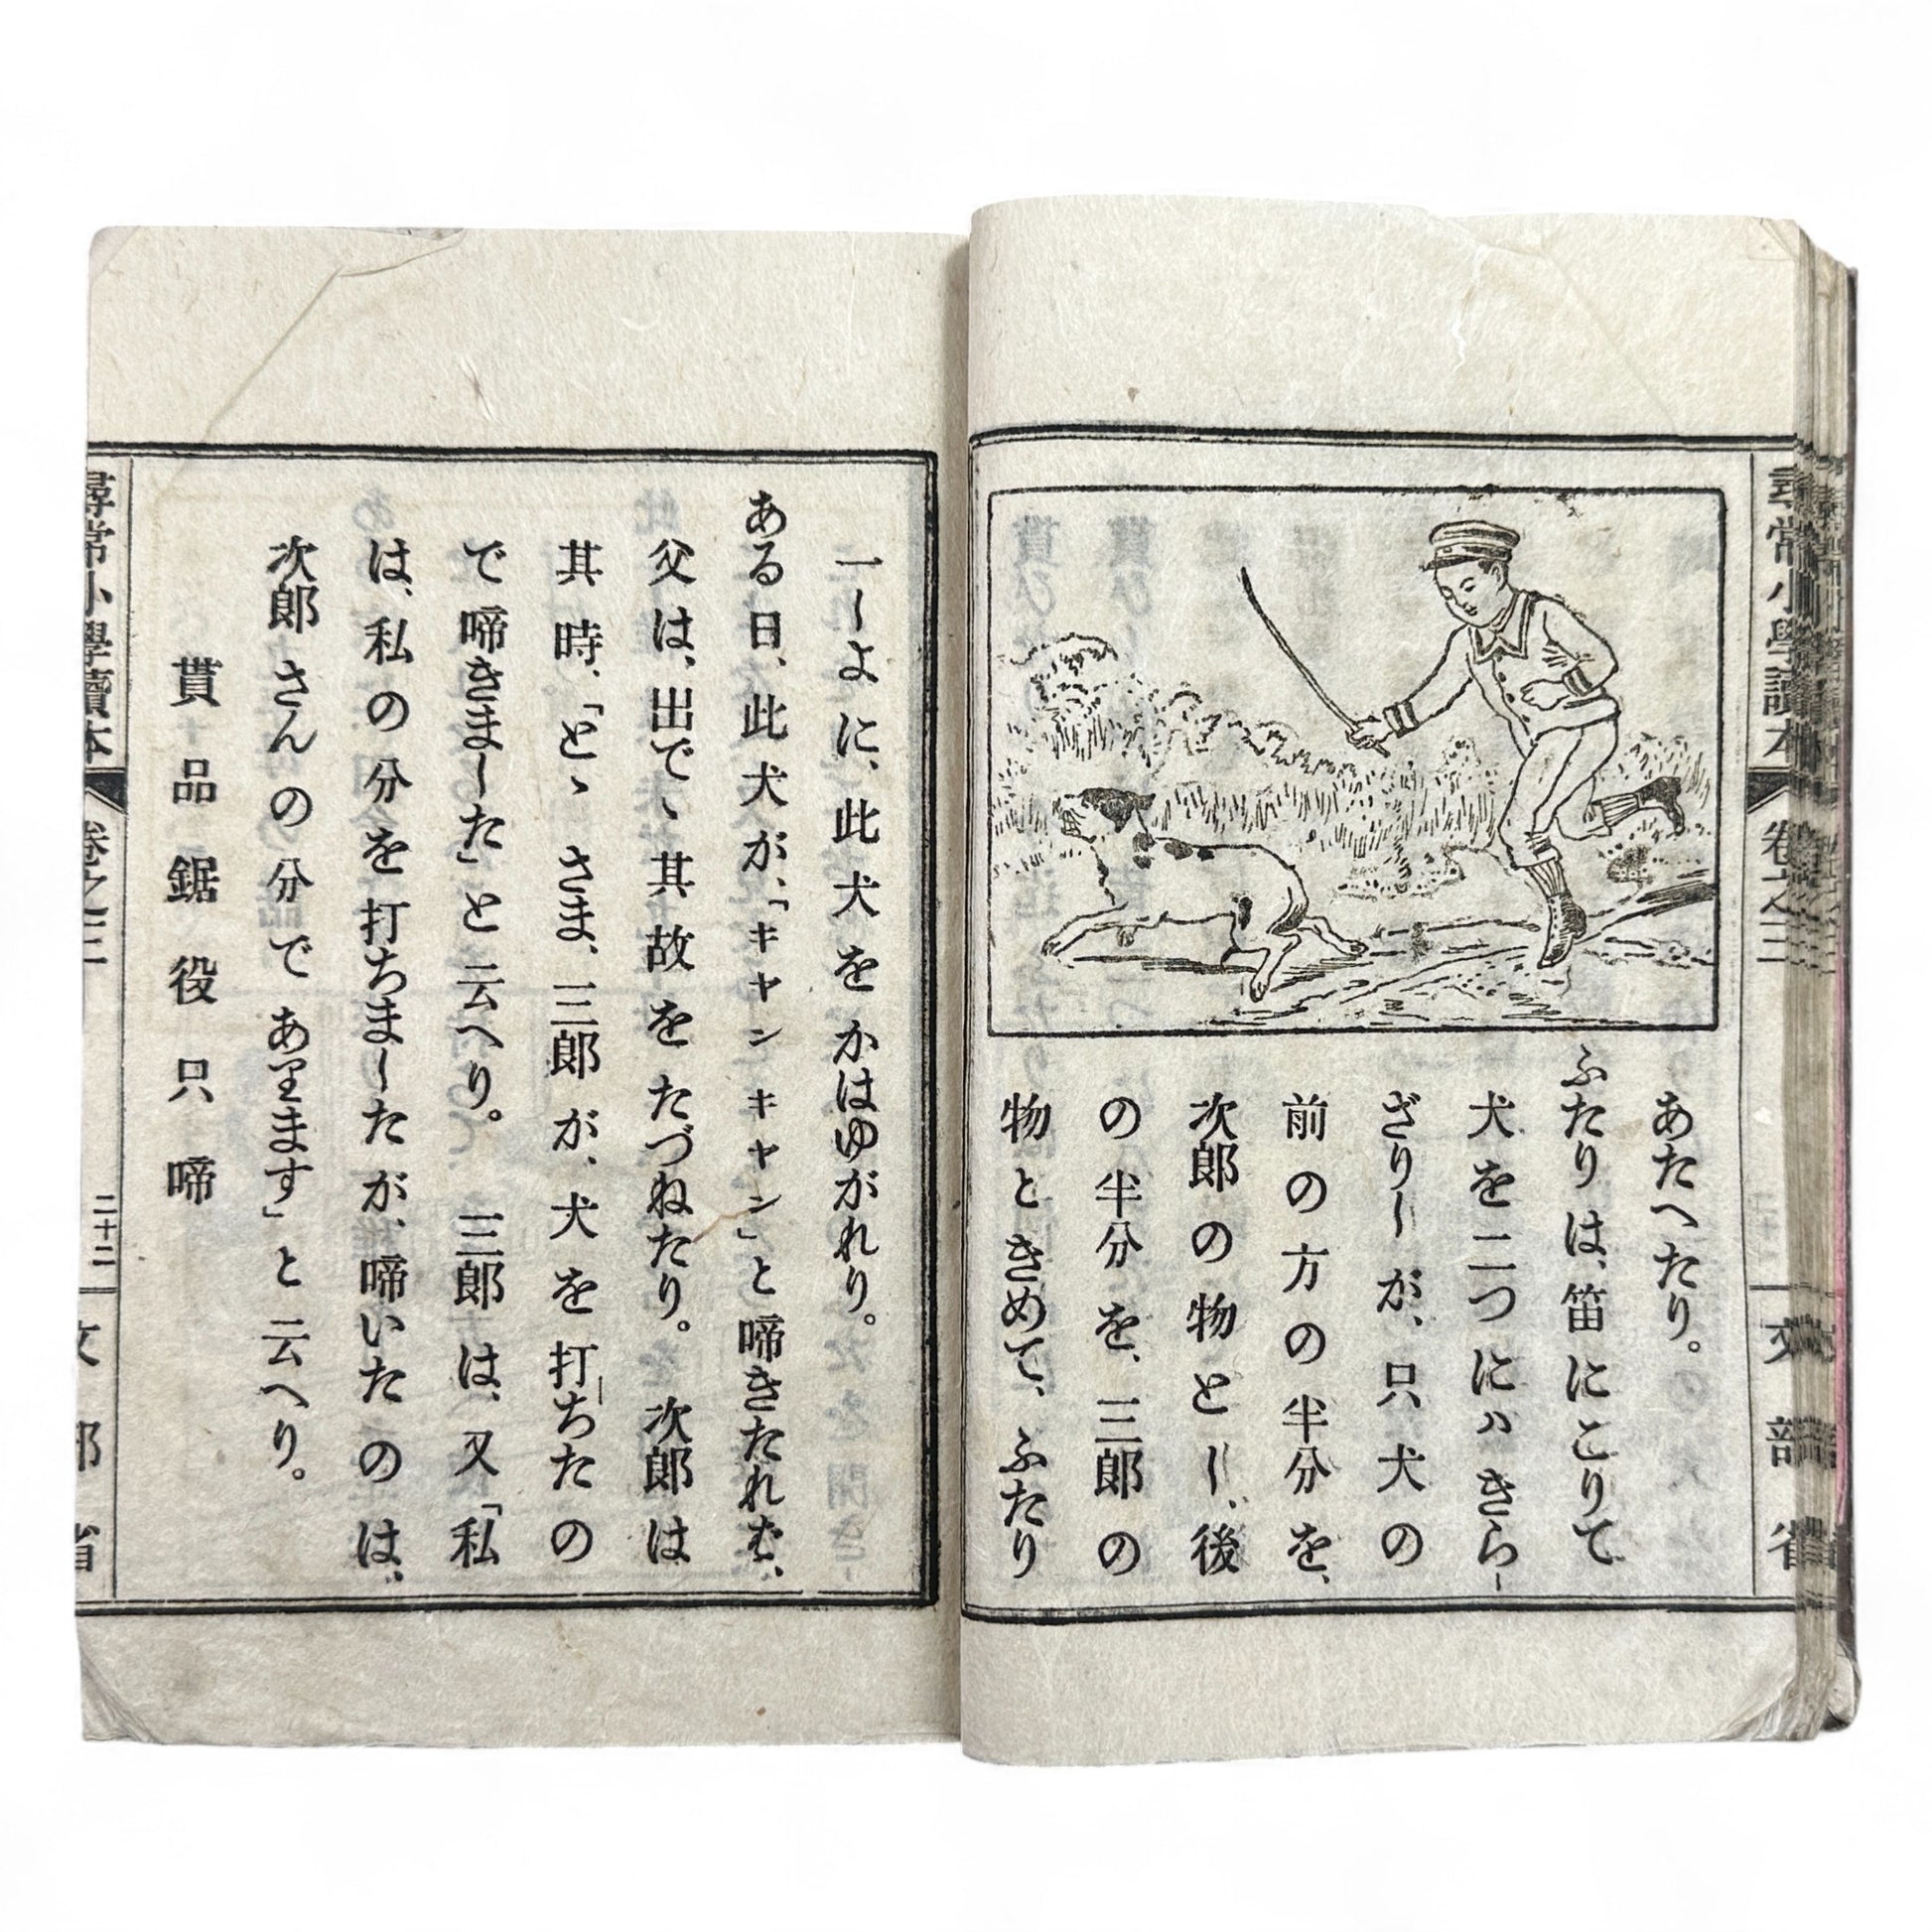 あたへたり。
ふたりは、笛にこりて
犬を二つにハきらー
ざりしが、只犬の
前の方の半分を、
次郎の物とし、後
の半分を、三郎の
物ときめて、ふたり
一しよに、此犬をかはゆがれり。
ある日、此犬が、「キヤンキヤン」と啼きたれば、
父は、出で、其故をたづねたり。次郎は
其時、「とゝさま、三郎が、犬を打ちたの
で啼きました」と云へり。三郎は、又「私
は、私の分を打ちましたが、啼いたのは、
次郎さんの分であります」と云へり。
貰品鋸役只啼
尋常小學讀本
卷之二
二十二
文部省